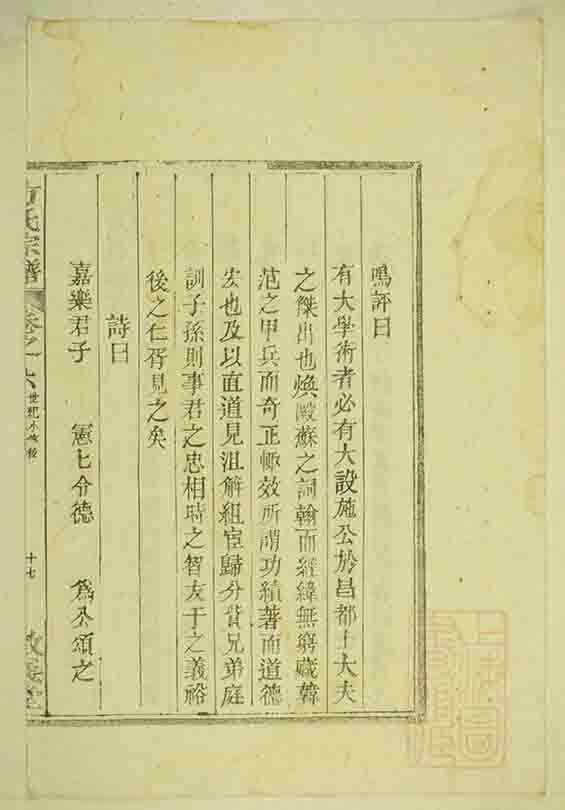 鳴評曰
有大學術者必有大設施公於昌都士大夫
之傑出也煥毆蘇之詞翰而經緯無窮藏韓
范之甲兵而奇正輙效所謂功績著而道德
宏也及以直道見沮解組宦歸分貲兄弟庭
訓子孫則事君之忠相時之智友于之義裕
後之仁胥見之矣
詩曰
嘉樂君子 憲七令德 爲公頌之
氏宗譜 卷之六 世紀小 後 十七